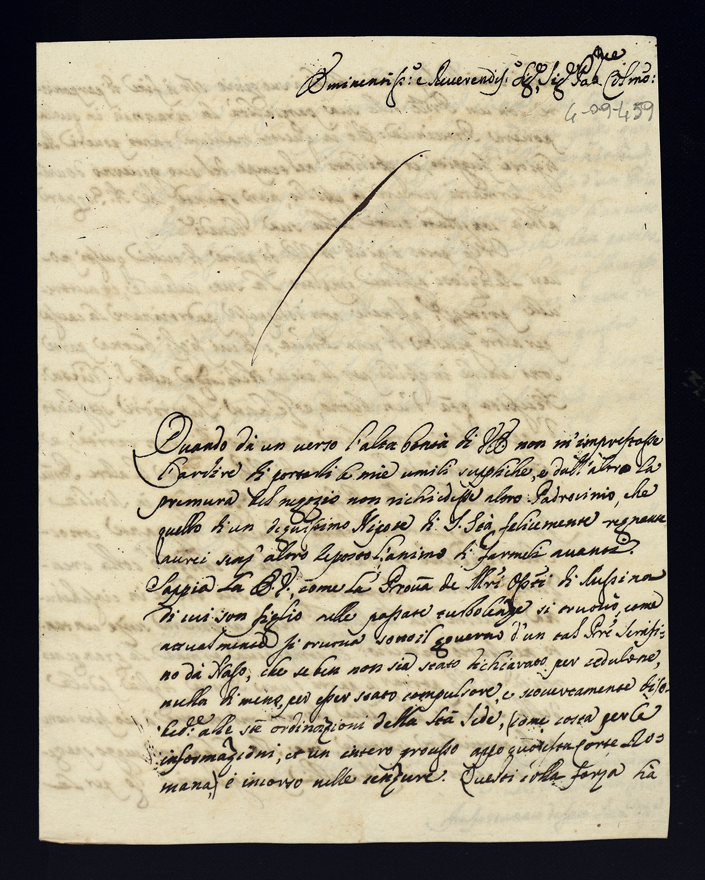 Eminentiss:º e Reverendiss:º Sig:re Sig:re Pad. Colmo:
4-09-459
Quando da un verso l'alta bontà di V.E. non m'imprestasse
l'ardire di porterli le mie umili suppliche, e dall'altro la
premura del negozio non richiedesse altro Padrocinio, che
quello di un degnissimo Nipote di S. Stà felicemente regnante
aurei senz'altro deposto l'animo di farmeli avanti.
Sappia La E.V., come la Provā de Mri Osti di Messina
di cui son figlio nelle passate turbolenze si trovò, come
attualmente si truova sotto il governo d'un tal Pre Serafi-
no da Naso, che se ben non sia stato dichiarato per cedulone,
nulla di meno, per esser stato compulsore, e scovertamente diso-
bed.te alle ste ordinazioni della Stà Sede, (come costa per le
informazioni, et un intero processo appo questa Corte Ro-
mana,) è incorso nelle censure. Questi colla forza hà